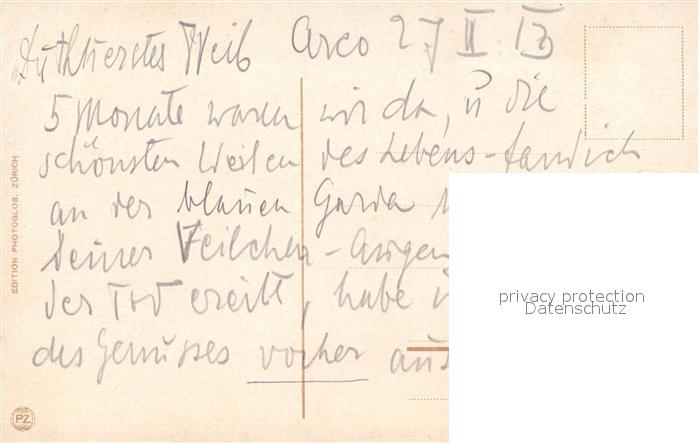 Weib Arco 27 II 13
5 Monate waren wir da, u die
schönsten Zeiten des Lebens - fand ich
an der blauen Garda
Deiner Veilchen-Augen
der Tod ereilt, habe
des Genusses vorher aus
EDITION PHOTOGLOB. ZÜRICH
PZ
privacy protection
Datenschutz